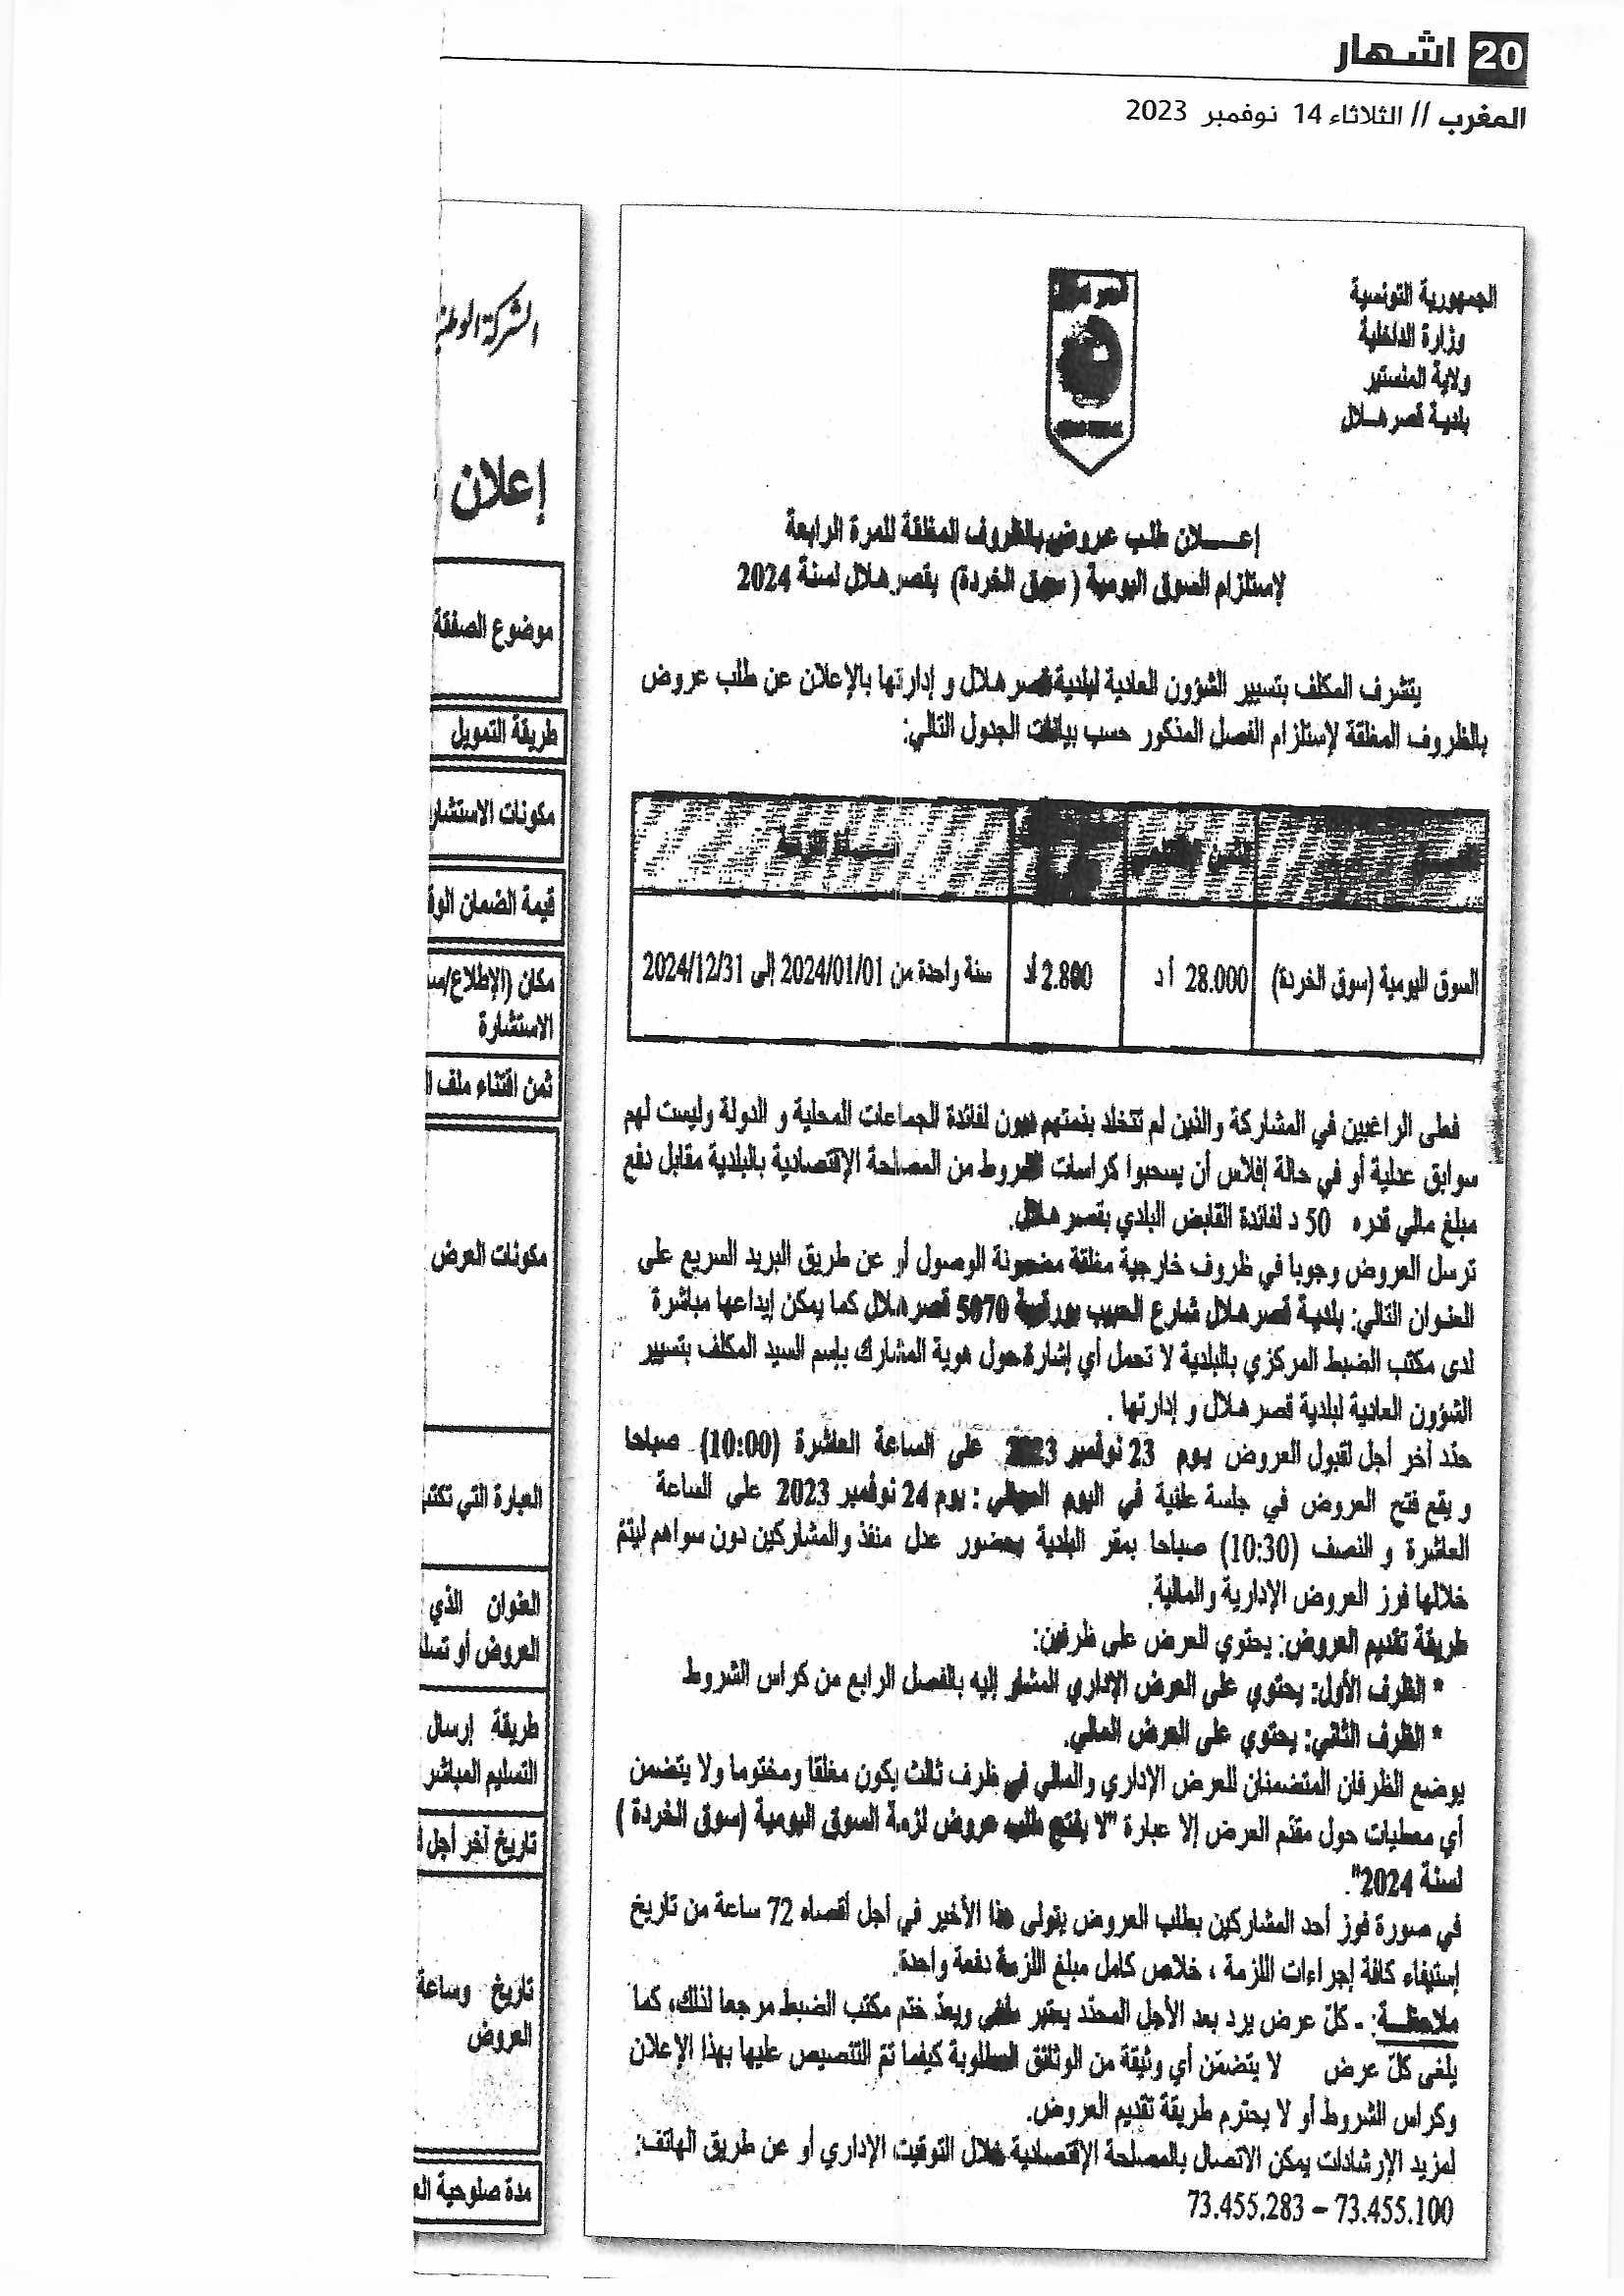 20 اشهار
المغرب // الثلاثاء 14 نوفمبر 2023
الجمهورية التونسية
وزارة الداخلية
ولاية المنستير
بلدية قصر هـلال
إعـــــلان طلب عروض بالظروف المغلقة للمرة الرابعة
لإستلزام السوق اليومية ( سوق الخردة) بقصر هلال لسنة 2024
يتشرف المكلف بتسيير الشؤون العادية لبلدية قصر هلال و إدارتها بالإعلان عن طلب عروض
بالظروف المغلقة لإستلزام الفصل المذكور حسب بيانات الجدول التالي:
السوق اليومية (سوق الخردة) 28.000 أ د 2.800 أد سنة واحدة من 2024/01/01 إلى 2024/12/31
فعلى الراغبين في المشاركة والذين لم تتخلد بذمتهم ديون لفائدة الجماعات المحلية و الدولة وليست لهم
سوابق عدلية أو في حالة إفلاس أن يسحبوا كراسات الشروط من المصلحة الإقتصادية بالبلدية مقابل دفع
مبلغ مالي قدره 50 د لفائدة القابض البلدي بقصر هلال.
ترسل العروض وجوبا في ظروف خارجية مغلقة مضمونة الوصول أو عن طريق البريد السريع على
العنوان التالي: بلدية قصر هلال شارع الحبيب بورقيبة 5070 قصر هلال كما يمكن إيداعها مباشرة
لدى مكتب الضبط المركزي بالبلدية لا تحمل أي إشارة حول هوية المشارك بإسم السيد المكلف بتسيير
الشؤون العادية لبلدية قصر هلال و إدارتها .
حدّد آخر أجل لقبول العروض يوم 23 نوفمبر 2023 على الساعة العاشرة (10:00) صباحا
و يقع فتح العروض في جلسة علنية في اليوم الموالي : يوم 24 نوفمبر 2023 على الساعة
العاشرة و النصف (10:30) صباحا بمقر البلدية بحضور عدل منفذ والمشاركين دون سواهم ليتمّ
خلالها فرز العروض الإدارية والمالية.
طريقة تقديم العروض: يحتوي العرض على ظرفين:
* الظرف الأول: يحتوي على العرض الإداري المشار إليه بالفصل الرابع من كراس الشروط
* الظرف الثاني: يحتوي على العرض المالي.
يوضع الظرفان المتضمنان للعرض الإداري والمالي في ظرف ثالث يكون مغلقا ومختوما ولا يتضمن
أي معطيات حول مقدّم العرض إلا عبارة "لا يفتح طلب عروض لزمة السوق اليومية (سوق الخردة )
لسنة 2024".
في صورة فوز أحد المشاركين بطلب العروض يتولى هذا الأخير في أجل أقصاه 72 ساعة من تاريخ
إستيفاء كافة إجراءات اللزمة ، خلاص كامل مبلغ اللزمة دفعة واحدة.
ملاحظـــة: - كلّ عرض يرد بعد الأجل المحدّد يعتبر ملغى ويعدّ ختم مكتب الضبط مرجعا لذلك، كما
يلغى كلّ عرض لا يتضمّن أي وثيقة من الوثائق المطلوبة كيفما تمّ التنصيص عليها بهذا الإعلان
وكراس الشروط أو لا يحترم طريقة تقديم العروض.
لمزيد الإرشادات يمكن الاتصال بالمصلحة الإقتصادية خلال التوقيت الإداري أو عن طريق الهاتف:
73.455.283 – 73.455.100
الشركة
إعلان
موضوع الصفقة
طريقة التمويل
مكونات
قيمة الضمان
مكان (الإطلاع/
الاستشارة
ثمن اقتناء ملف
مكونات العرض
العبارة التي
العنوان الذي
العروض أو
طريقة إرسال
التسليم المباشر
تاريخ آخر أجل
تاريخ وساعة
العروض
مدة صلوحية